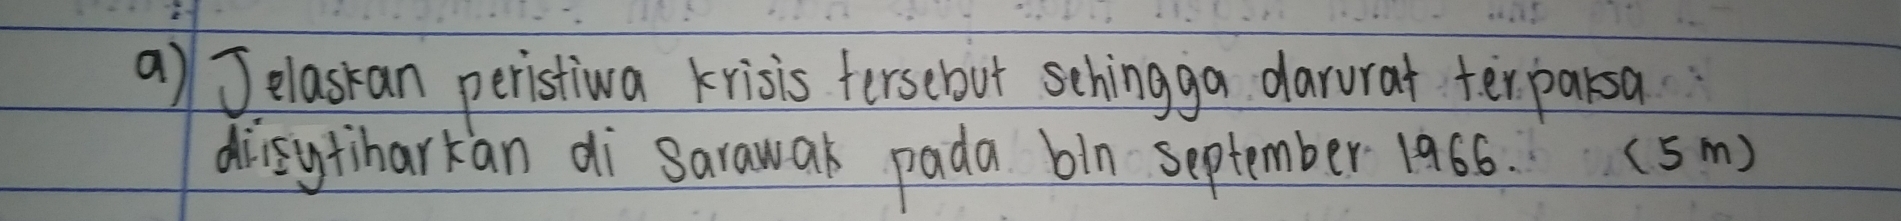 a) Jelaskan peristiwa krisis tersebut sehingga darurat terpaksa
diisytiharkan di Sarawak pada bln September 1966. (5 m)